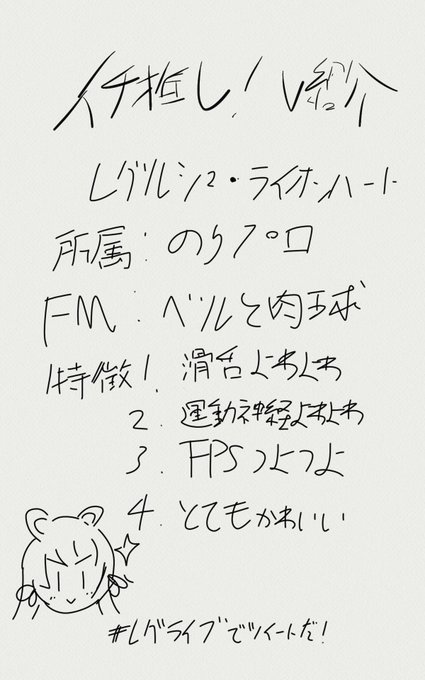 イチ推し!V紹介
レグルシュ・ライオンハート
所属:のりプロ
FM:ベルと肉球
特徴1.滑舌よわよわ
2.運動神経よわよわ
3.FPSつよつよ
4.とてもかわいい
#レグライブでツイートだ!